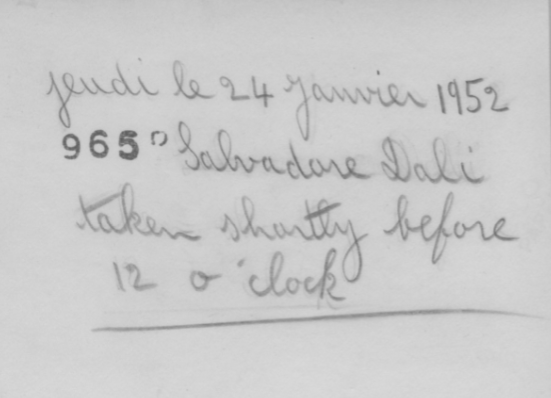 jeudi le 24 Janvier 1952
965D Salvadore Dali
taken shortly before
12 o'clock